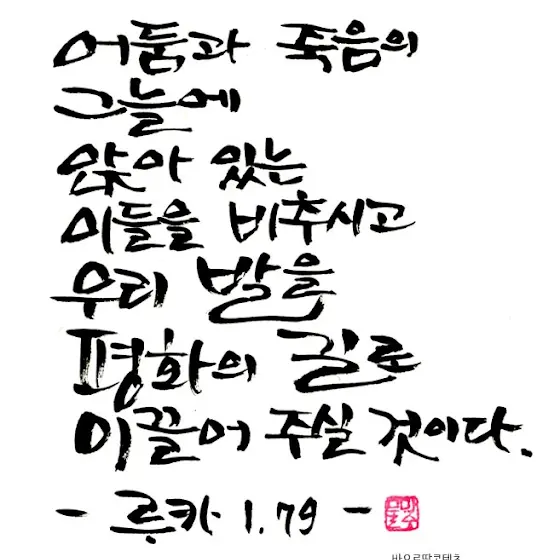 어둠과 죽음의
그늘에
앉아 있는
이들을 비추시고
우리 발을
평화의 길로
이끌어 주실 것이다.
- 루카 1.79 -
바오로딸콘텐츠